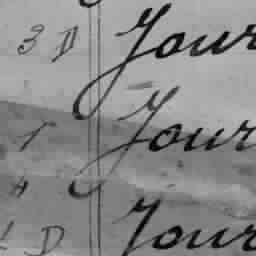 3 D Jour
1 Jour
4
D Jour